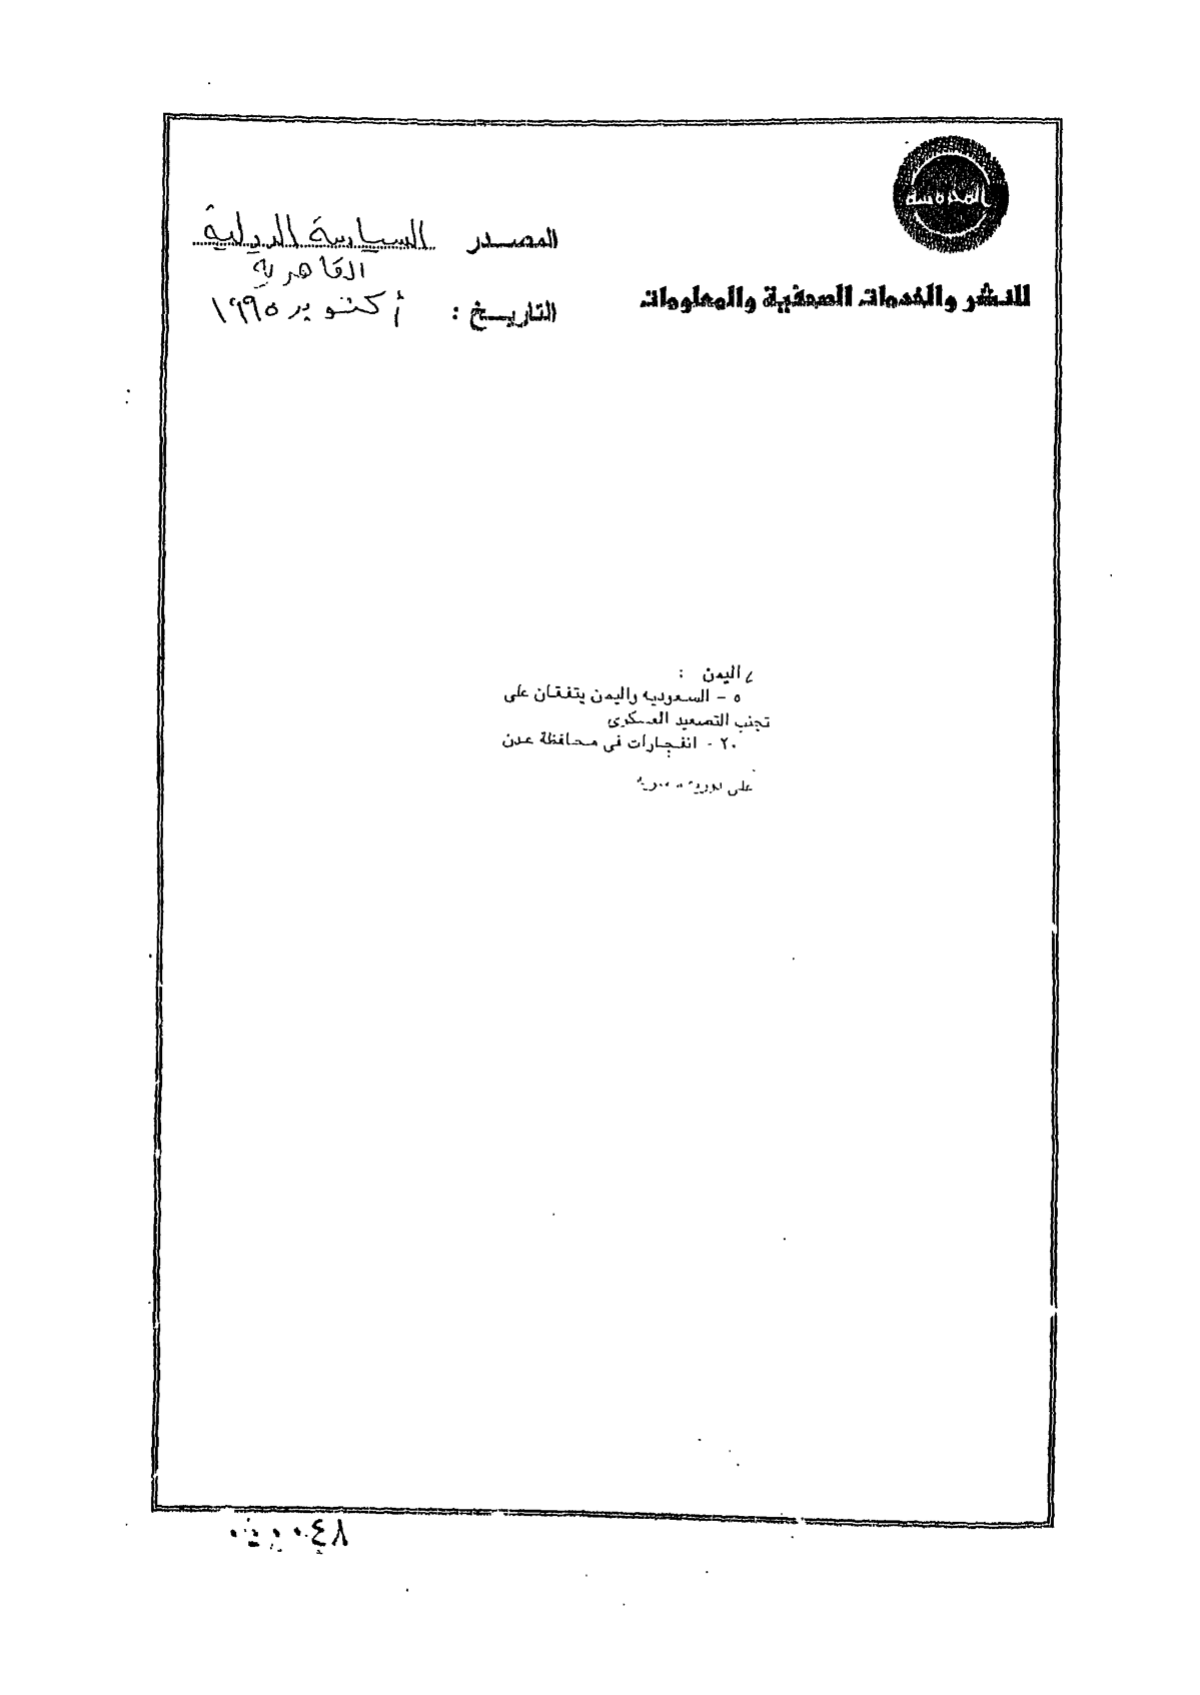 المحروسة
للنشر والخدمات الصحفية والمعلومات
المصدر السياسة الدولية
القاهرية
التاريخ : أكتوبر ١٩٩٥
اليمن :
٥ - السعودية واليمن يتفقان على
تجنب التصعيد العسكرى
٢٠ - انفجارات فى محافظة عدن
على
٠٤٨